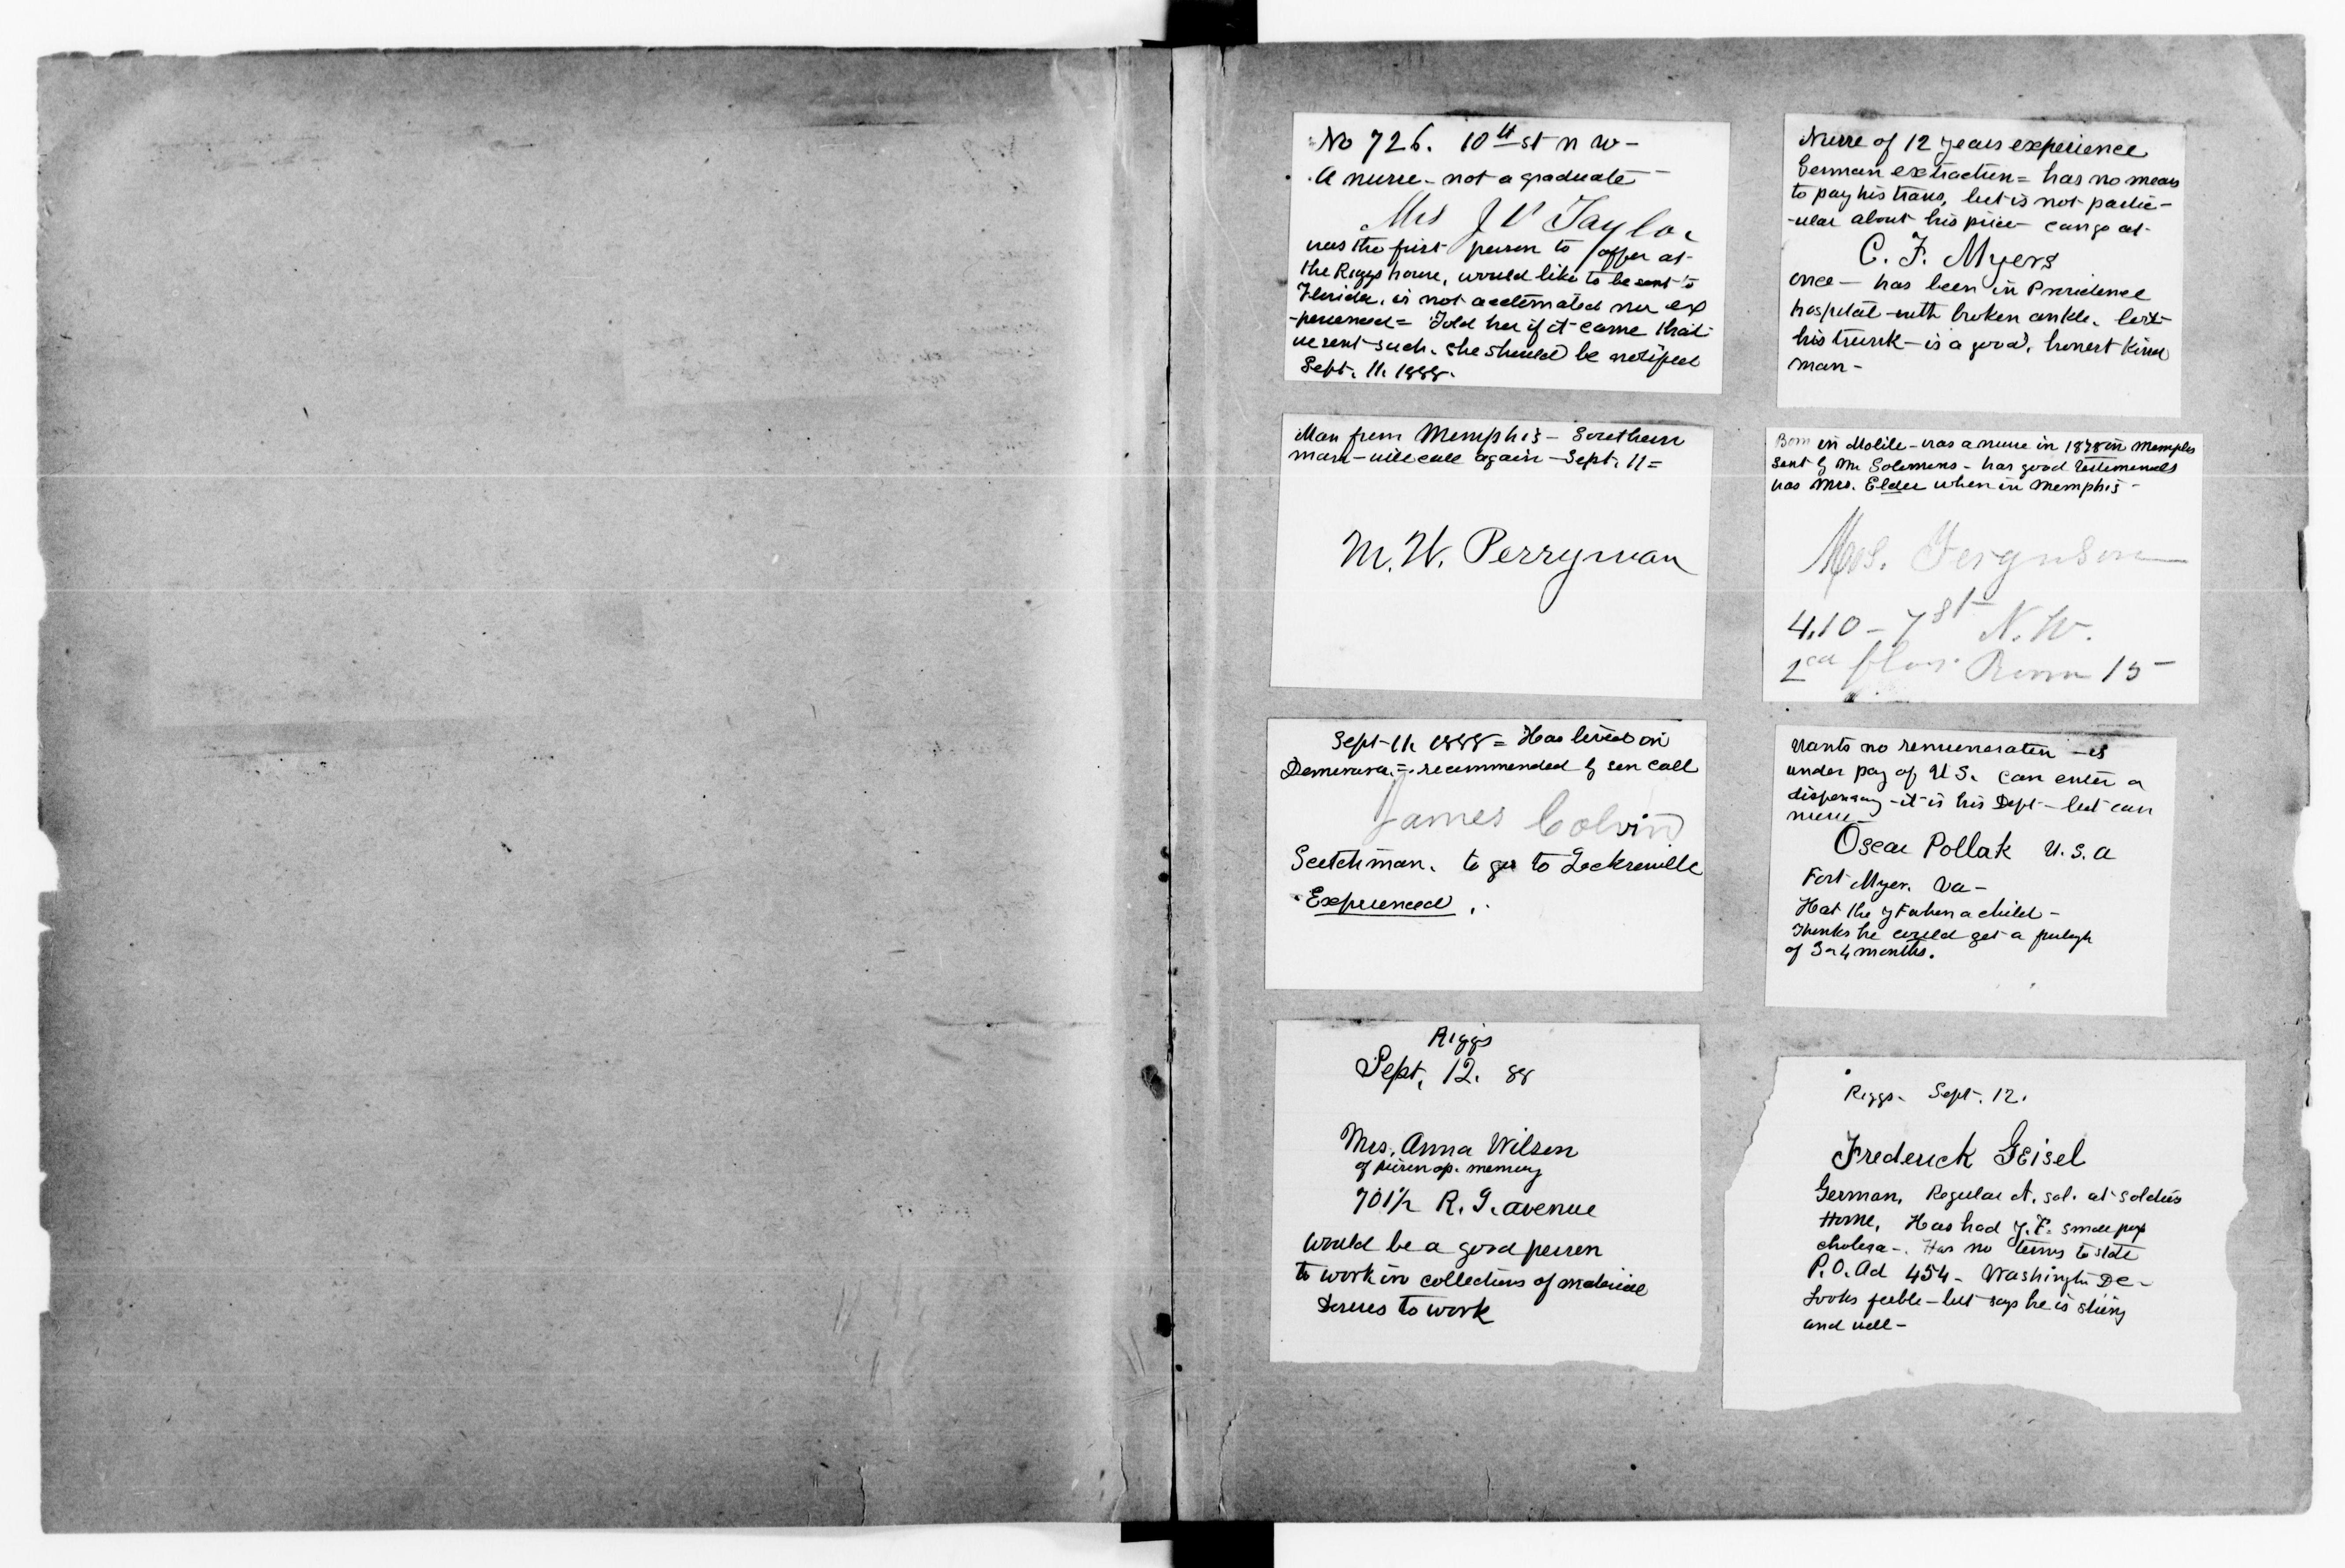 No 726. 10th st n w -
A nurse - not a graduate -
Mrs J V Taylor
was the first person to offer at
the Riggs house, would like to be sent to
Florida, is not acclimated nor ex
-perienced = Told her if it came that
we sent such, she should be notified
Sept. 11. 1888.
Nurse of 12 years experience
German extraction = has no means
to pay his trans, but is not partic-
-ular about his price - can go at
C. F. Myers
once - has been in Providence
hospital - with broken ankle. lost
his trunk - is a good, honest kind
man -
Man from Memphis - Southern
man - will call again - Sept. 11 =
M. W. Perryman
Born in Mobile - was a nurse in 1878 in Memphis
sent by Mr Solomons - has good testimonials
was Mrs. Elder when in Memphis -
Mrs. Ferguson
410 - 7 st N. W.
2nd floor Room 15
Sept 11. 1888 = Has lived in
Demerara. = recommended by sen Call
James Colvin
Scotchman. to go to Jacksonville
Experienced.
Wants no remuneration - is
under pay of U S. can enter a
dispensary - it is his Dept - but can
nurse -
Oscar Pollak U. S. A
Fort Myer. Va -
Had the yf when a child -
Thinks he could get a furlough
of 3 or 4 months.
Riggs
Sept. 12. 88
Mrs. Anna Wilson
of memory
701 1/2 R. I. avenue
Would be a good person
to work in collections of material
Desires to work
Riggs - Sept. 12.
Frederick Geisel
German, Regular A. sol. at soldiers
Home, Has had y. F. small pox
cholera -. Has no terms to state
P. O. Ad 454 - Washington DC -
Looks feeble - but says he is strong
and well -